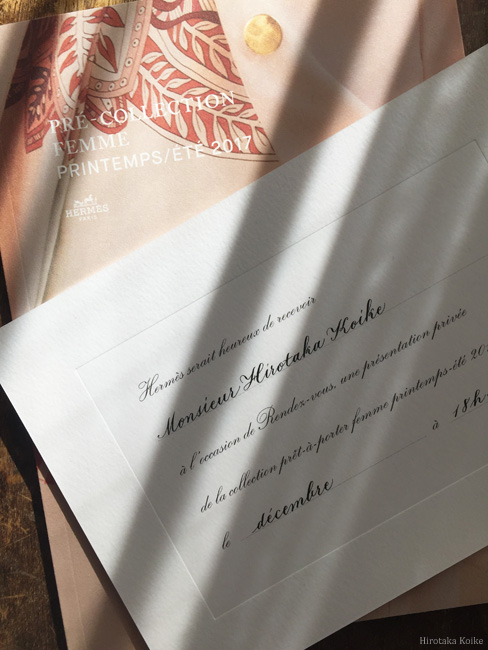 PRÉ-COLLECTION
FEMME
PRINTEMPS/ÉTÉ 2017
HERMÈS
PARIS
Hermès serait heureux de recevoir
Monsieur Hirotaka Koike
à l'occasion de Rendez-vous, une présentation privée
de la collection prêt-à-porter femme printemps-été 20
le décembre à 18h
Hirotaka Koike